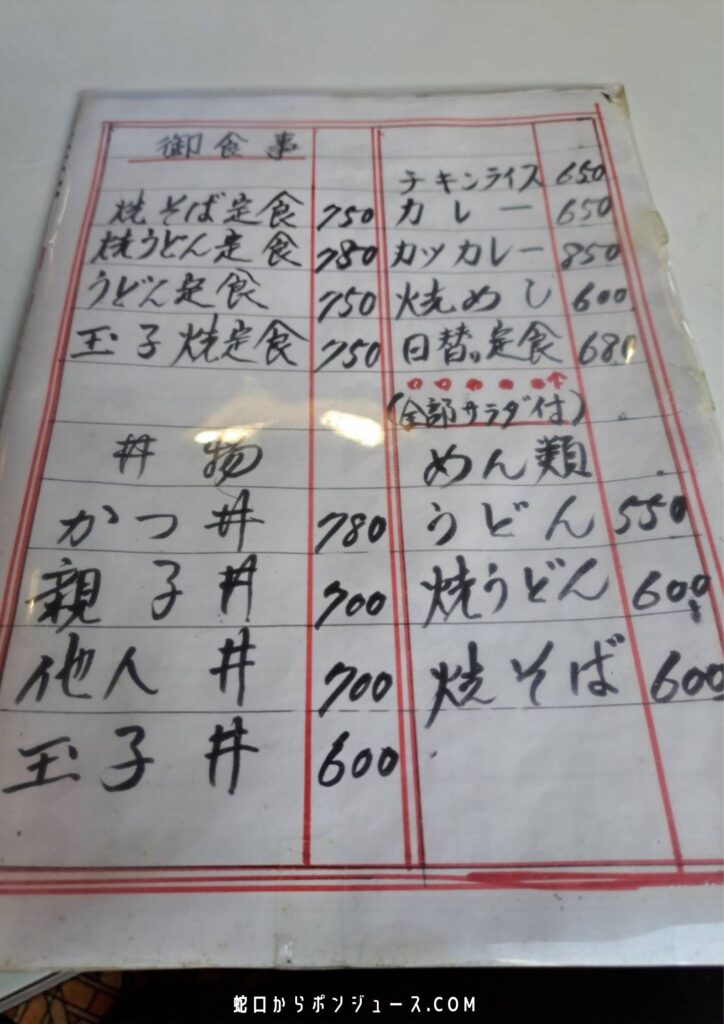 御食事
焼そば定食 750
焼うどん定食 780
うどん定食 750
玉子焼定食 750
丼物
かつ丼 780
親子丼 700
他人丼 700
玉子丼 600
チキンライス 650
カレー 650
カツカレー 850
焼めし 600
日替り定食 680
(全部サラダ付)
めん類
うどん 550
焼うどん 600
焼そば 600
蛇口からポンジュース.COM